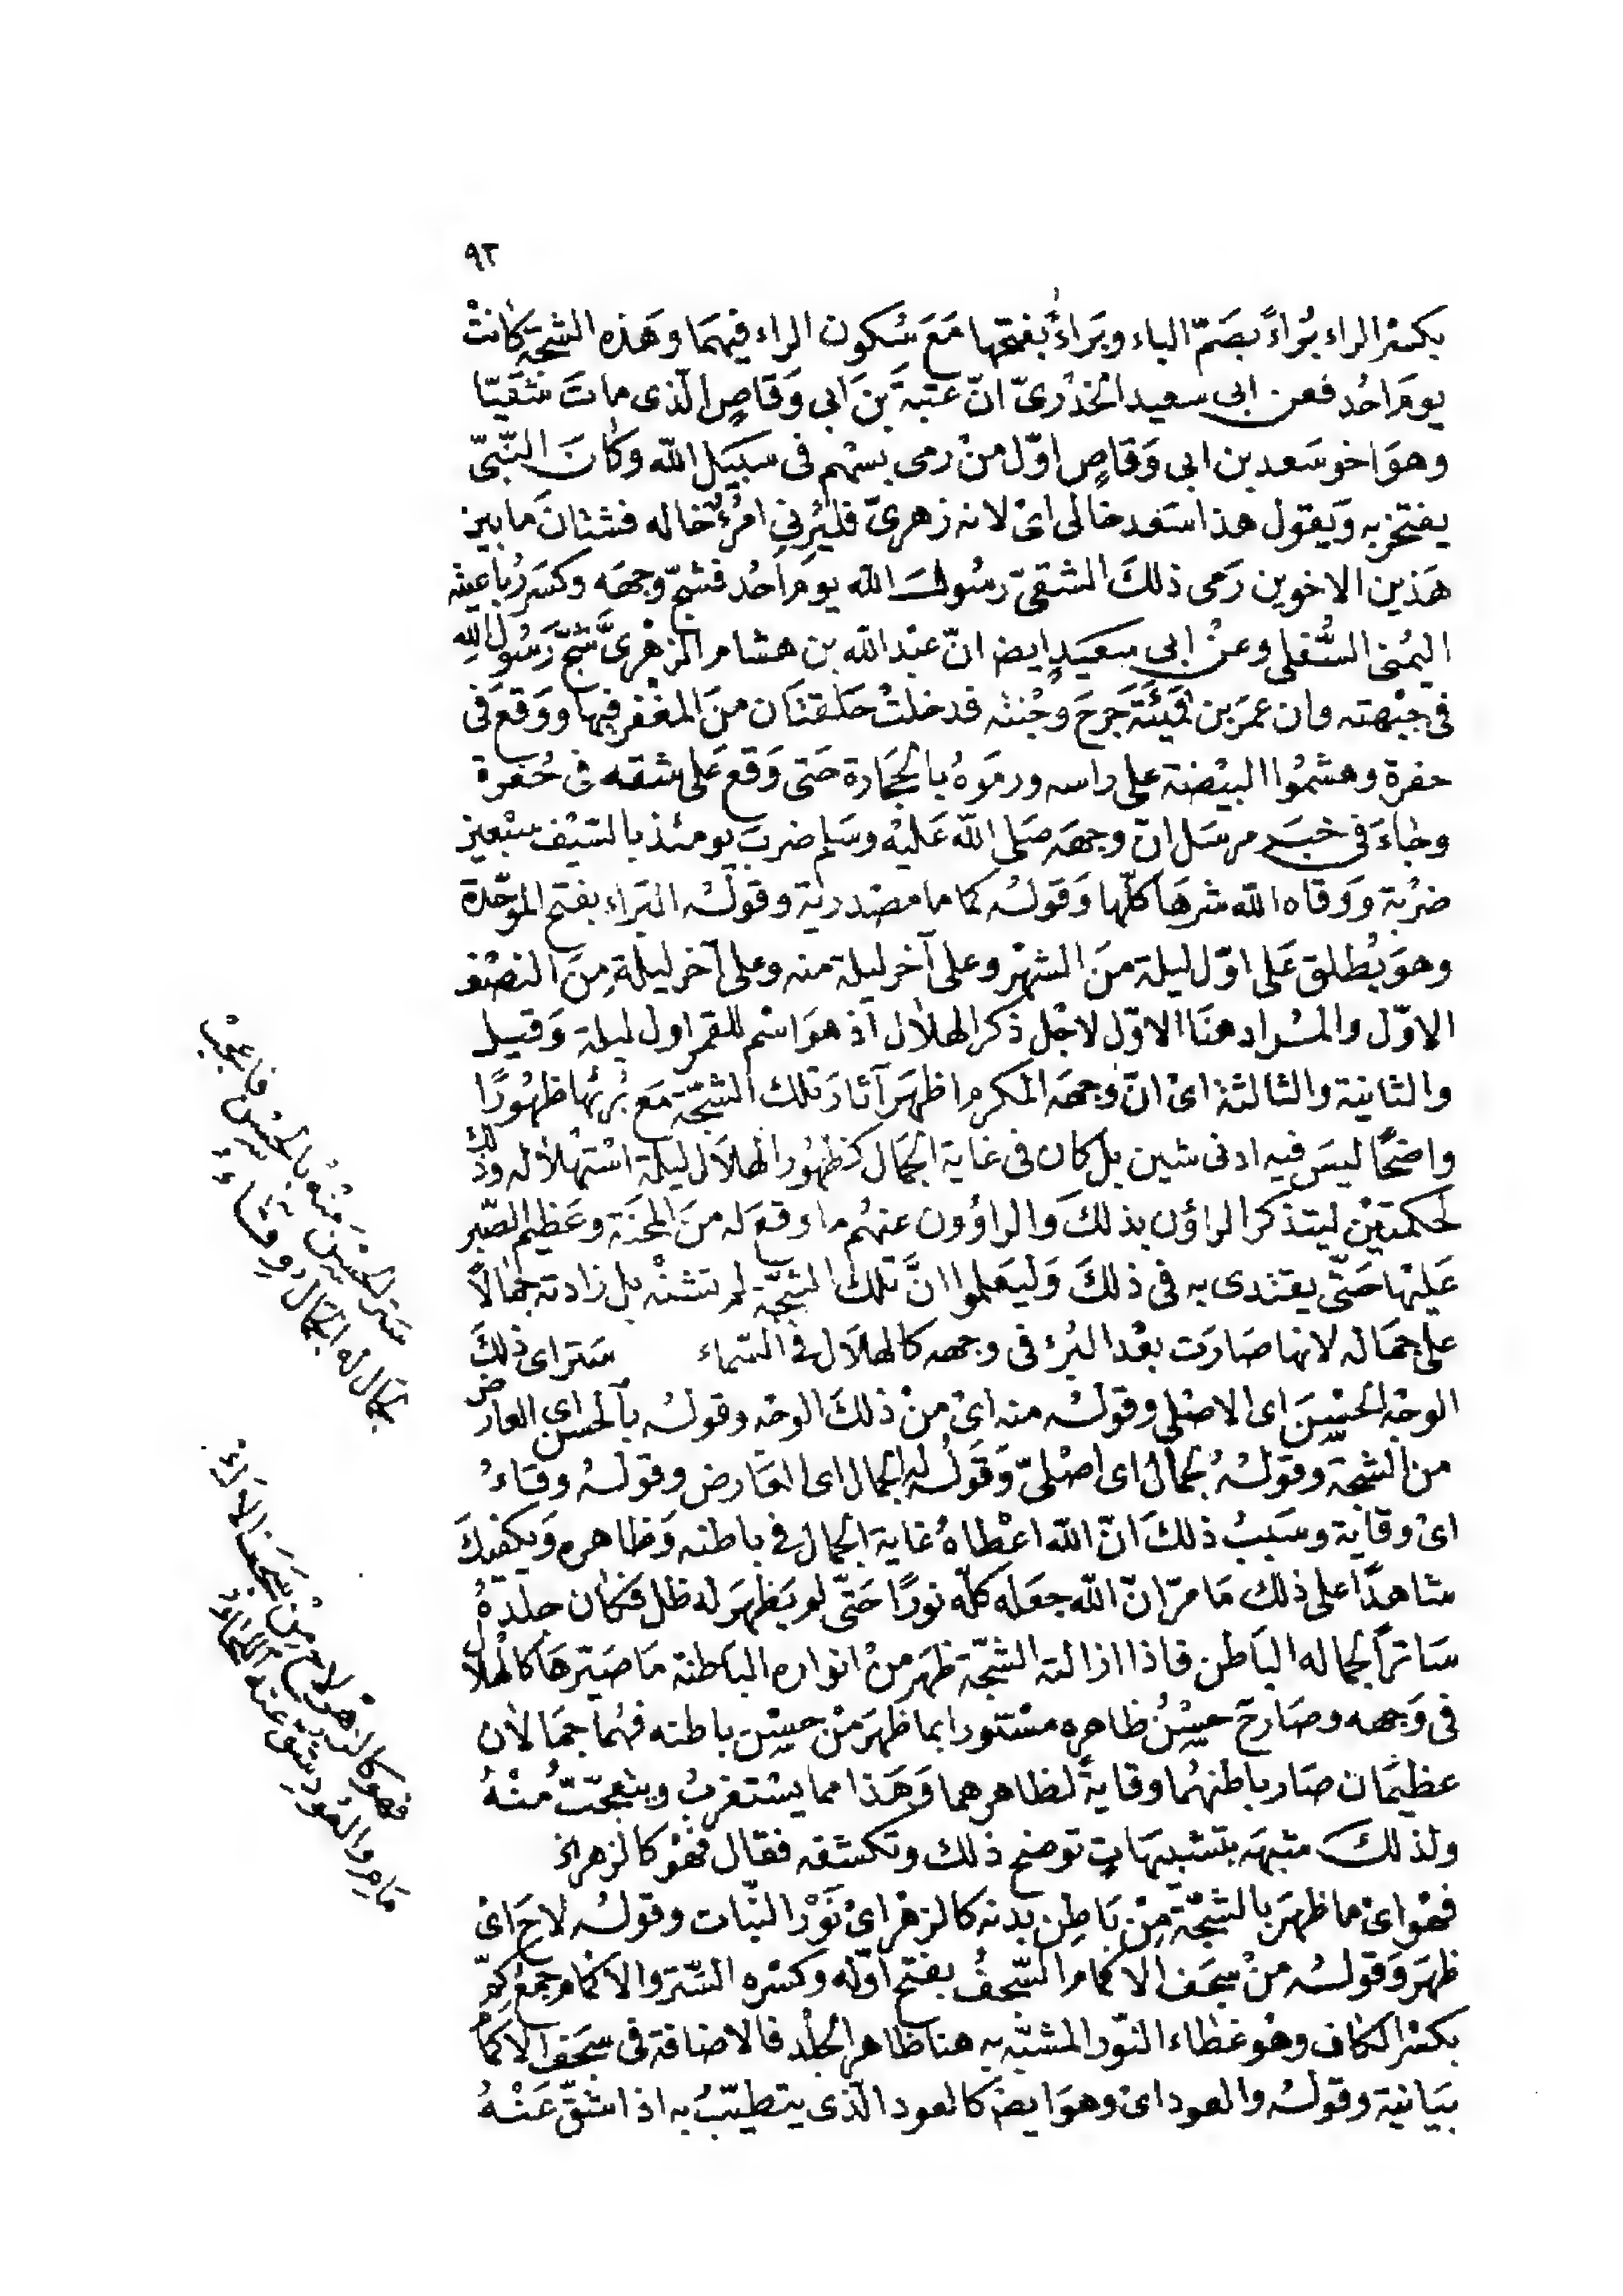 ٩٢
بكسر الراء بُراءً بضمّ الباء وبَراءً بفتحها مَعَ سُكون الراء فيهمَا وَهَذه الشجّة كانتْ
يومَ احُد فعن ابى سعيد الخدْرىّ انّ عتبةَ بنَ ابى وَقاصٍ الّذى ماتَ شقيّا
وهوَ اخو سَعد بن ابى وَقاصٍ اوّل منْ رمى بسَهْم فى سَبيَل الله وَكانَ النّبىّ
يفتخر به وَيقول هذا سَعْد خالى اىْ لانه زهرىّ فليُرنِى امْرُءٌ خاله فشتّانَ مَا بين
هَذين الاخوين رَمى ذلكَ الشقىّ رسُولَ الله يومَ احُد فشجّ وجهَه وكسَر رُباعيته
اليمْنى السُّفلى وعنْ ابى سعَيدٍ ايضا انّ عبْد الله بن هشام الزهْرىَّ شجّ رَسُولَ اللهِ
فى جبْهته وان عمرَ بن قَمِئَةَ جَرحَ وجْنته فدخلتْ حَلْقتَان منَ المغْفر فيهَا ووَقعَ فى
حفرةٍ وهشمُوا البيْضة على راسه ورمَوهُ بالحجَارة حَتى وَقع عَلى شقه فى حُفرة
وجَاءَ فى خبَر مرسَل انّ وجهَه صَلى الله عَليْه وسَلم ضربَ يومئذ بالسّيْف سبْعين
ضرْبة وَوَقاه الله شرهَا كلّها وَقولُه كما ما مصْدرية وقولُه البَراء بفتح الموحّدة
وهوَ يُطلق عَلى اوّل ليلة منَ الشهْر وعلى آخر ليلة منه وعلى آخر ليلة مِنَ النصْف
الاوّل والمرَاد هنَا الاوّل لاجْل ذكر الهلال اذ هوَ اسْم للقمر اول ليلة وَقيل
والثانية والثالثة اىْ انّ وَجهَه المكرم اظهَر آثارَ تلك الشجّة مَع بُرئهَا ظهُورًا
واضحًا ليسَ فيه ادنى شين بل كان فى غاية الجمَال كظهُور الهلاَل ليلة اسْتهْلاَله وذلك
لحكمَتيْن ليتذكر الراؤن بذلكَ وَالراوُون عنهُم ما وقعَ له منَ المحْنَة وعَظيم الصّبر
عَليْهَا حَتّى يقتدى به فى ذلكَ وَليَعْلموا انَّ تلك الشجّة لم تشنْه بل زادته جمَالاً
على جمَاله لانها صَارَت بعْد البُرْء فى وجهه كالهلاَل فى السّماء ستر اى ذلكَ
الوجْه الحُسْنَ اى الاصْلى وقولُه منه اىْ منْ ذلكَ الوجْه وقولُه بالحسن اى العارض
من الشجّة وقولُهُ بجمالٍ اى اصْلىّ وَقولُه له الجمال اى العَارض وقولُهُ وقاءُ
اىْ وقاية وسَببُ ذلكَ انّ الله اعْطاهُ غاية الجمال فى باطنه وَظاهره وَيكفيكَ
شاهدًا على ذلك مَا مرّ انّ الله جعَله كلّه نورًا حَتّى لم يَظهَر له ظل فكان جلدهُ
سَاترًا لجماله البَاطن فاذا ازالته الشجّة ظهَر منْ انواره البَاطنة مَا صَيّرهَا كالهلاَل
فى وَجهه وصَار حَ حسْنُ ظاهره مسْتورا بما ظهَر منْ حسْن باطنه فهُما جمَالاَن
عظيمَان صَار باطنهُما وقايةً لظاهرهما وَهَذا مما يسْتغربُ ويتعجّبُ منْهُ
ولذلكَ شبهَه بتشبيهَاتٍ توضح ذلك وتكشفه فقال فهْو كالزهرِ الخ
فهْو اىْ ما ظهَر بالشجّة مِنْ بَاطِن بدنه كالزهْر اىْ نَوْر النّبات وقولُه لاحَ اىْ
ظهَر وَقولُه منْ سجَف الاكمام السّجْفُ بفتح اوّله وكسْره السّتر والاكمام جمعُ كمّ
بكسْر الكاف وهُو غطاء النّوْر المشبّه به هنا ظاهر الجلْد فالاضافة فى سجَف الاكمام
بيَانية وقولُه والعود اىْ وهوَ ايضا كالعود الّذى يتطيّبُ به اذا شقّ عَنْهُ
سَتر الحُسْنَ مِنْهُ بالحُسْنِ فاعْجَبْ
بجَمَالٍ لَه الجمَالُ وِقَاءُ
فهْو كالزهْرِ لاحَ مِنْ سَجَفِ الاكْ
مَامِ والعُودِ شُقَّ عَنهُ اللحَاءُ